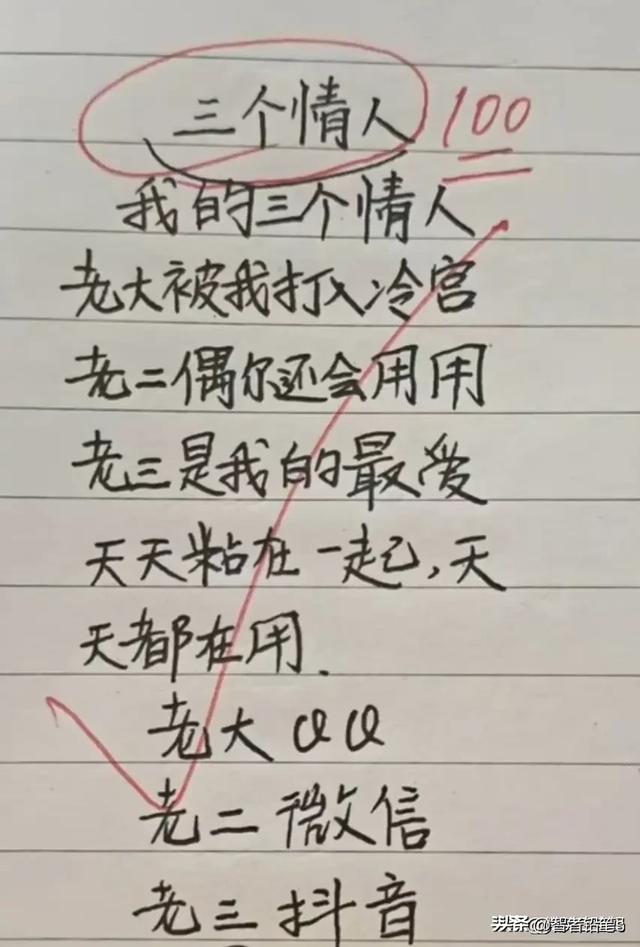 三个情人 100
我的三个情人
老大被我打入冷宫
老二偶尔还会用用
老三是我的最爱
天天粘在一起,天
天都在用.
老大QQ
老二微信
老三抖音
头条@智者铅笔